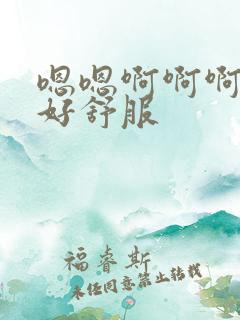 嗯嗯啊啊啊
好舒服
福睿斯
未经同意禁止转载